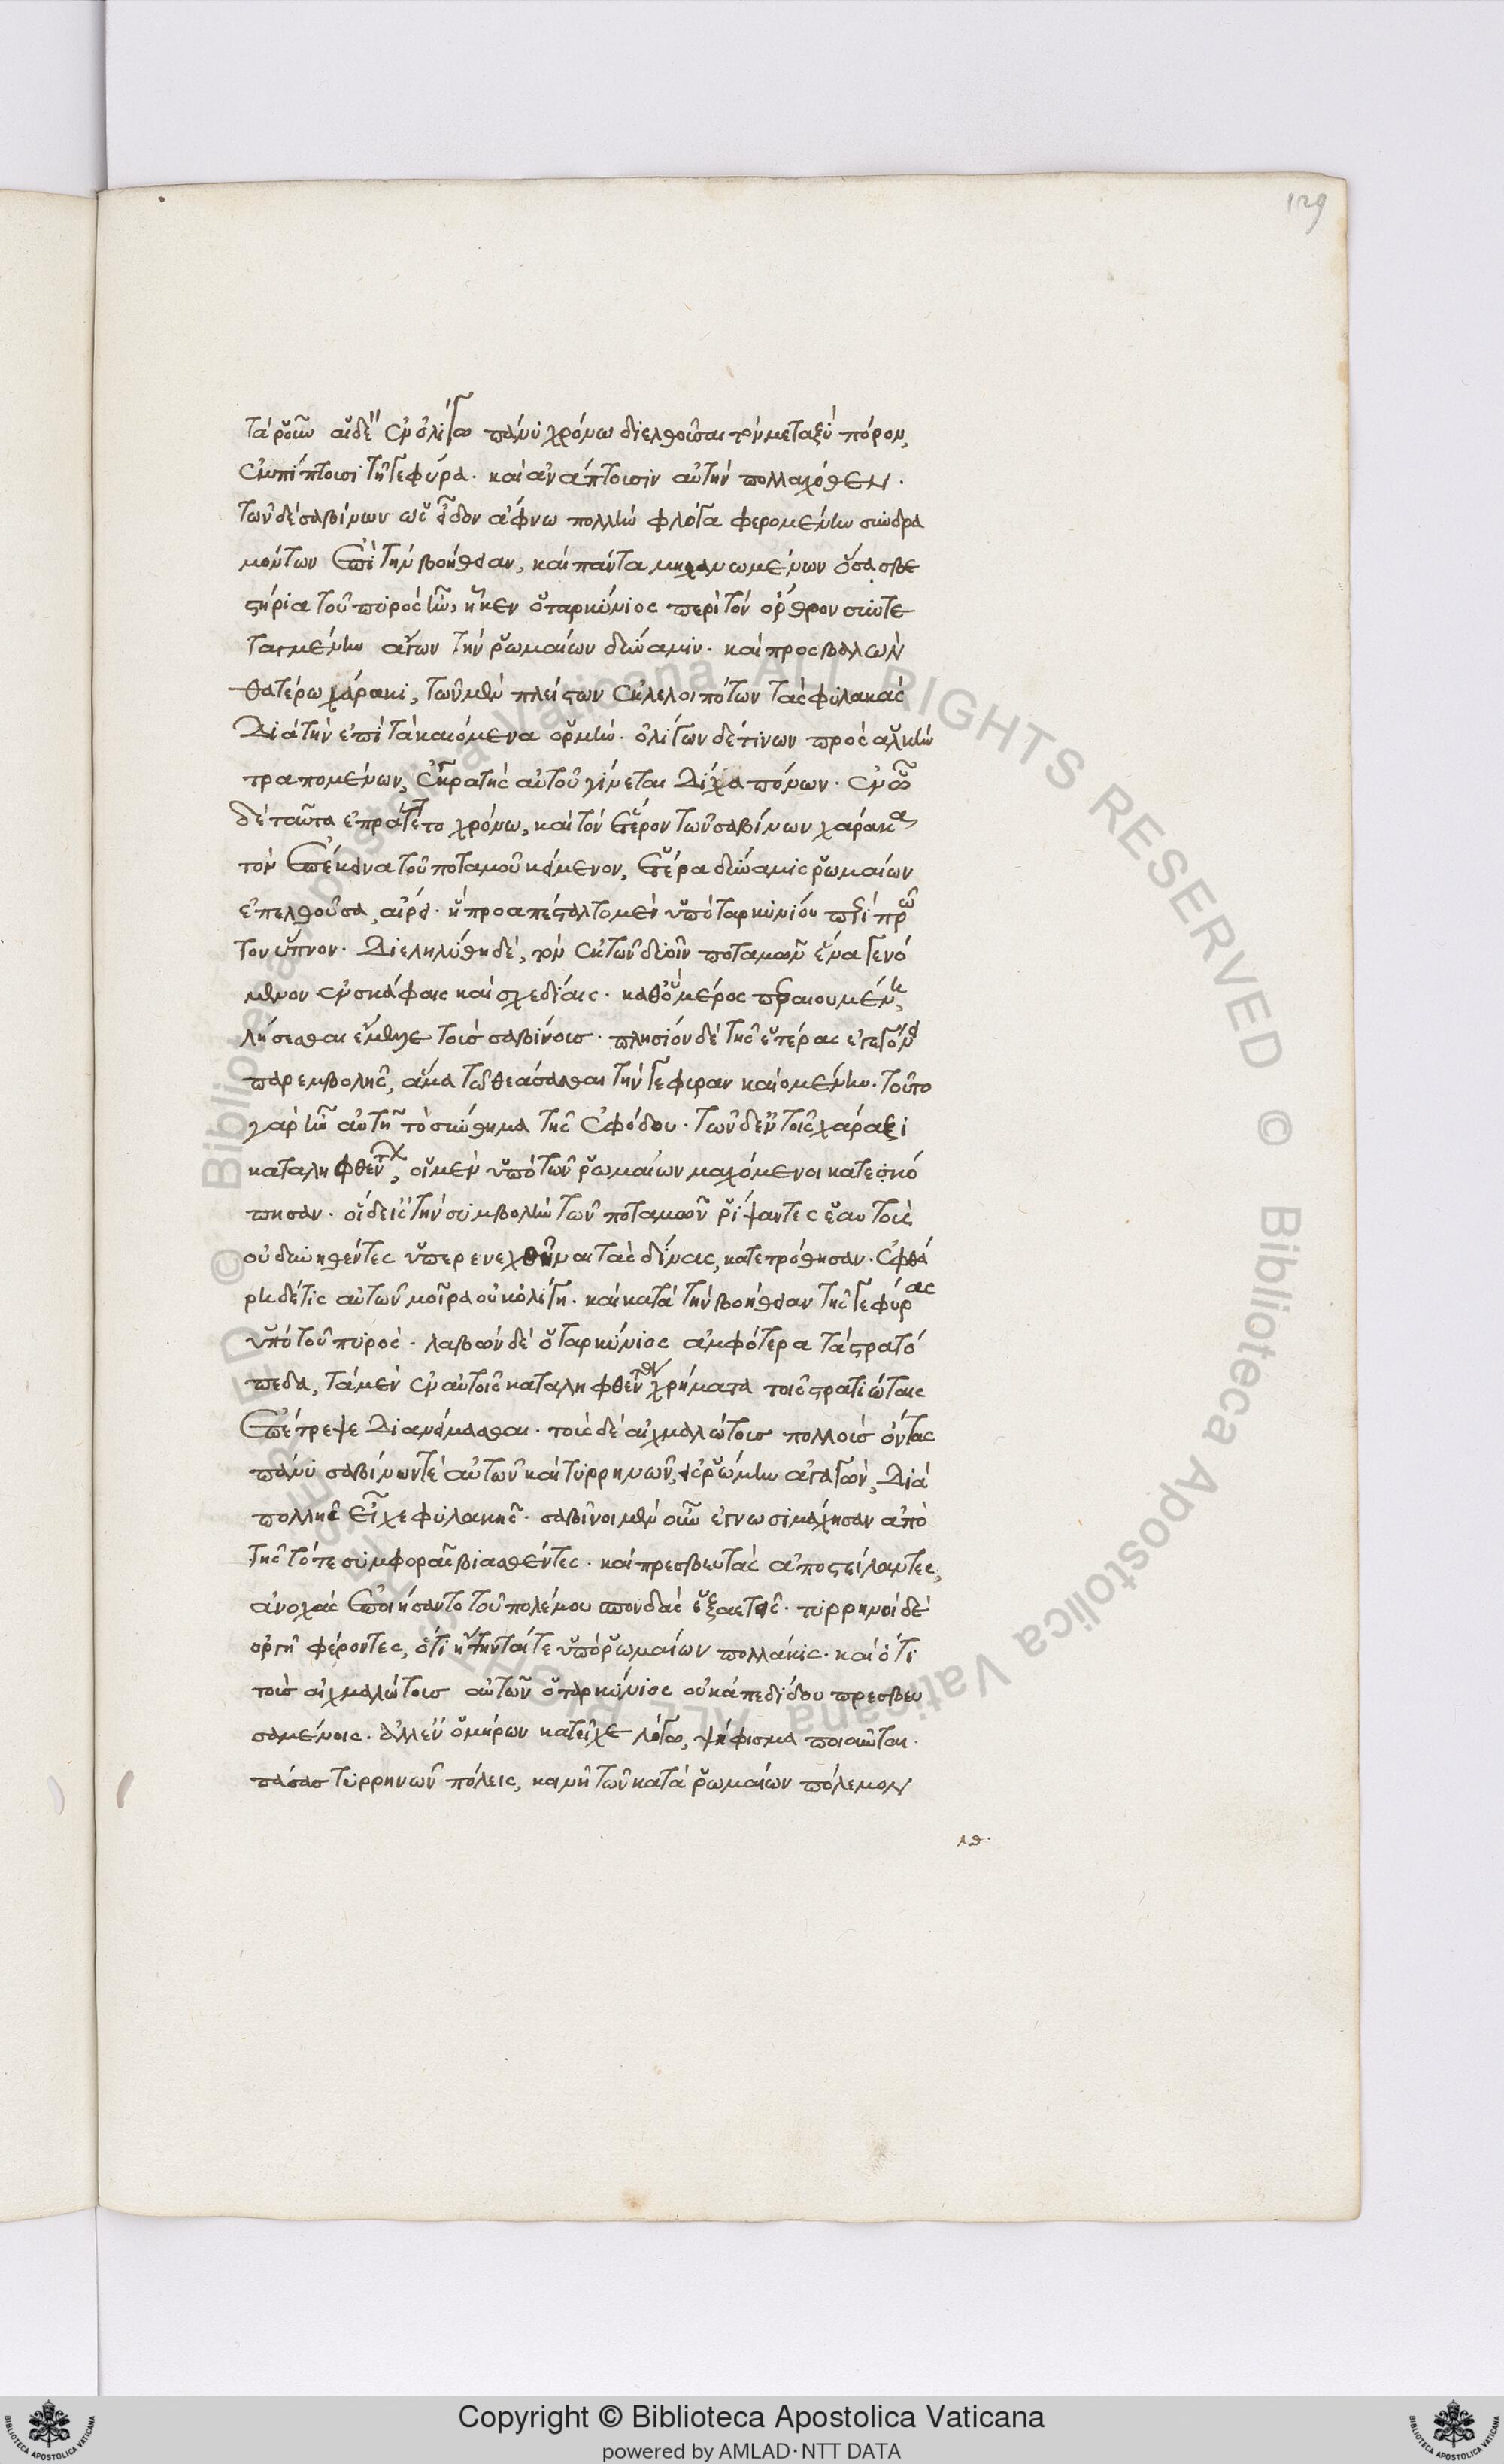 129
τὰ ῥοῦν αἱ δὲ ἐν ὀλίγω πάνυ χρόνω διελθοῦσαι τὸν μεταξὺ πόρον,
ἐμπίπτουσι τῆ γεφύρα. καὶ ἀνάπτουσιν αὐτὴν πολλαχόθεν.
τῶν δὲ σαβίνων ὡς εἶδον ἄφνω πολλὴν φλόγα φερομένην συνδρα
μόντων ἐπὶ τὴν βοήθειαν, καὶ πάντα μηχανωμένων ὅσα σβε
στήρια τοῦ πυρὸς ἦν, ἧκεν ὁ ταρκύνιος περὶ τὸν ὄρθρον συντε
ταγμένην ἄγων τὴν ῥωμαίων δύναμιν. καὶ προσβαλὼν
θατέρω χάρακι, τῶν μὲν πλείστων ἐκλελοιπότων τὰς φυλακὰς
διὰ τὴν ἐπὶ τὰ καιόμενα ὁρμήν. ὀλίγων δέ τινων πρὸς ἀλκὴν
τραπομένων, ἐγκρατὴς αὐτοῦ γίνεται δίχα πόνων. ἐν ὧ
δὲ ταῦτα ἐπράττετο χρόνω, καὶ τὸν ἕτερον τῶν σαβίνων χάρακα
τὸν ἐπέκεινα τοῦ ποταμοῦ κείμενον, ἑτέρα δύναμις ῥωμαίων
ἐπελθοῦσα, αἱρεῖ. ἣ προαπέσταλτο μὲν ὑπὸ ταρκυνίου περὶ πρῶ
τον ὕπνον. διεληλύθει δὲ, τὸν ἐκ τῶν δυοῖν ποταμῶν ἕνα γενό
μενον ἐν σκάφαις καὶ σχεδίαις. καθ' ὃ μέρος περαιουμένη,
λήσεσθαι ἔμελλε τοὺς σαβίνους. πλησίον δὲ τῆς ἑτέρας ἐγεγόνει
παρεμβολῆς, ἅμα τῶ θεάσασθαι τὴν γέφυραν καιομένην. τοῦτο
γὰρ ἦν αὐτῆ τὸ σύνθημα τῆς ἐφόδου. τῶν δ' ἐν τοῖς χάραξι
καταληφθέντων, οἱ μὲν ὑπὸ τῶν ῥωμαίων μαχόμενοι κατεκό
πησαν. οἱ δ' εἰς τὴν συμβολὴν τῶν ποταμῶν ῥίψαντες ἑαυτοὺς
οὐ δυνηθέντες ὑπερενεχθῆναι τὰς δίνας, κατεπόθησαν. ἐφθά
ρη δέ τις αὐτῶν μοῖρα οὐκ ὀλίγη. καὶ κατὰ τὴν βοήθειαν τῆς γεφύρας
ὑπὸ τοῦ πυρός. λαβὼν δὲ ὁ ταρκύνιος ἀμφότερα τὰ στρατό
πεδα, τὰ μὲν ἐν αὐτοῖς καταληφθέντα χρήματα τοῖς στρατιώταις
ἐπέτρεψε διανείμασθαι. τοὺς δὲ αἰχμαλώτους πολλοὺς ὄντας
πάνυ σαβίνων τὲ αὐτῶν καὶ τυρρηνῶν, εἰς ῥώμην ἀγαγὼν, διὰ
πολλῆς εἶχε φυλακῆς. σαβῖνοι μὲν οὖν ἐγνωσιμάχησαν ἀπὸ
τῆς τότε συμφορᾶς βιασθέντες. καὶ πρεσβευτὰς ἀποστείλαντες,
ἀνοχὰς ἐποιήσαντο τοῦ πολέμου σπονδὰς ἑξαετεῖς. τυρρηνοὶ δὲ
ὀργῆ φέροντες, ὅτι ἥττηνταί τε ὑπὸ ῥωμαίων πολλάκις. καὶ ὅτι
τοὺς αἰχμαλώτους αὐτῶν ὁ ταρκύνιος οὐκ ἀπεδίδου πρεσβευ
σαμένοις. ἀλλ' ἐν ὁμήρων κατεῖχε λόγω, ψήφισμα ποιοῦνται.
πάσας τυρρηνῶν πόλεις, κοινῆ τῶν κατὰ ῥωμαίων πόλεμον
ιθ.
© Biblioteca Apostolica Vaticana ALL RIGHTS RESERVED © Biblioteca Apostolica Vaticana ALL RIGHTS RESERVED
Copyright © Biblioteca Apostolica Vaticana
powered by AMLAD·NTT DATA
BIBLIOTECA APOSTOLICA VATICANA
BIBLIOTECA APOSTOLICA VATICANA